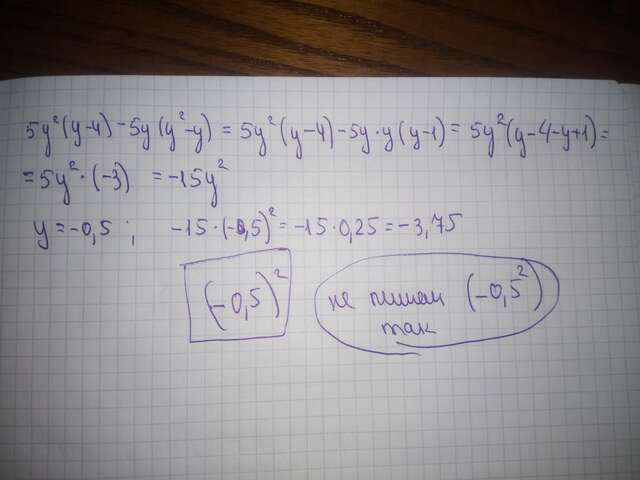 5y²(y-4)-5y(y²-y)=5y²(y-4)-5y·y(y-1)=5y²(y-4-y+1)=
=5y²·(-3)=-15y²
y=-0,5; -15·(-0,5)²=-15·0,25=-3,75
(-0,5)²
не пишем (-0,5²)
так